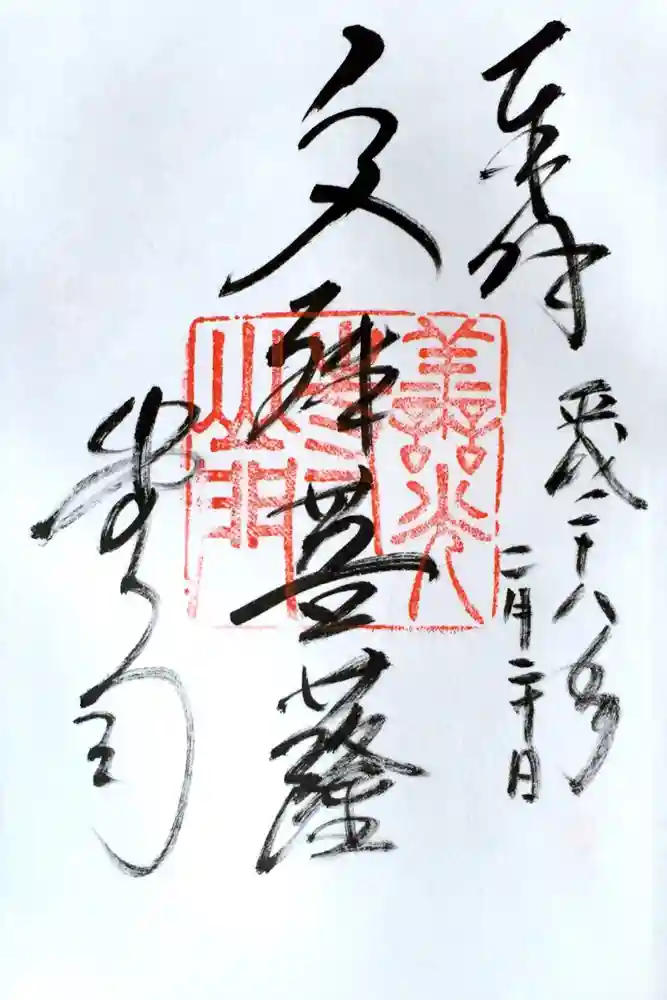 奉拝
平成二十八年
二月二十日
文殊菩薩
善光
寺
山門